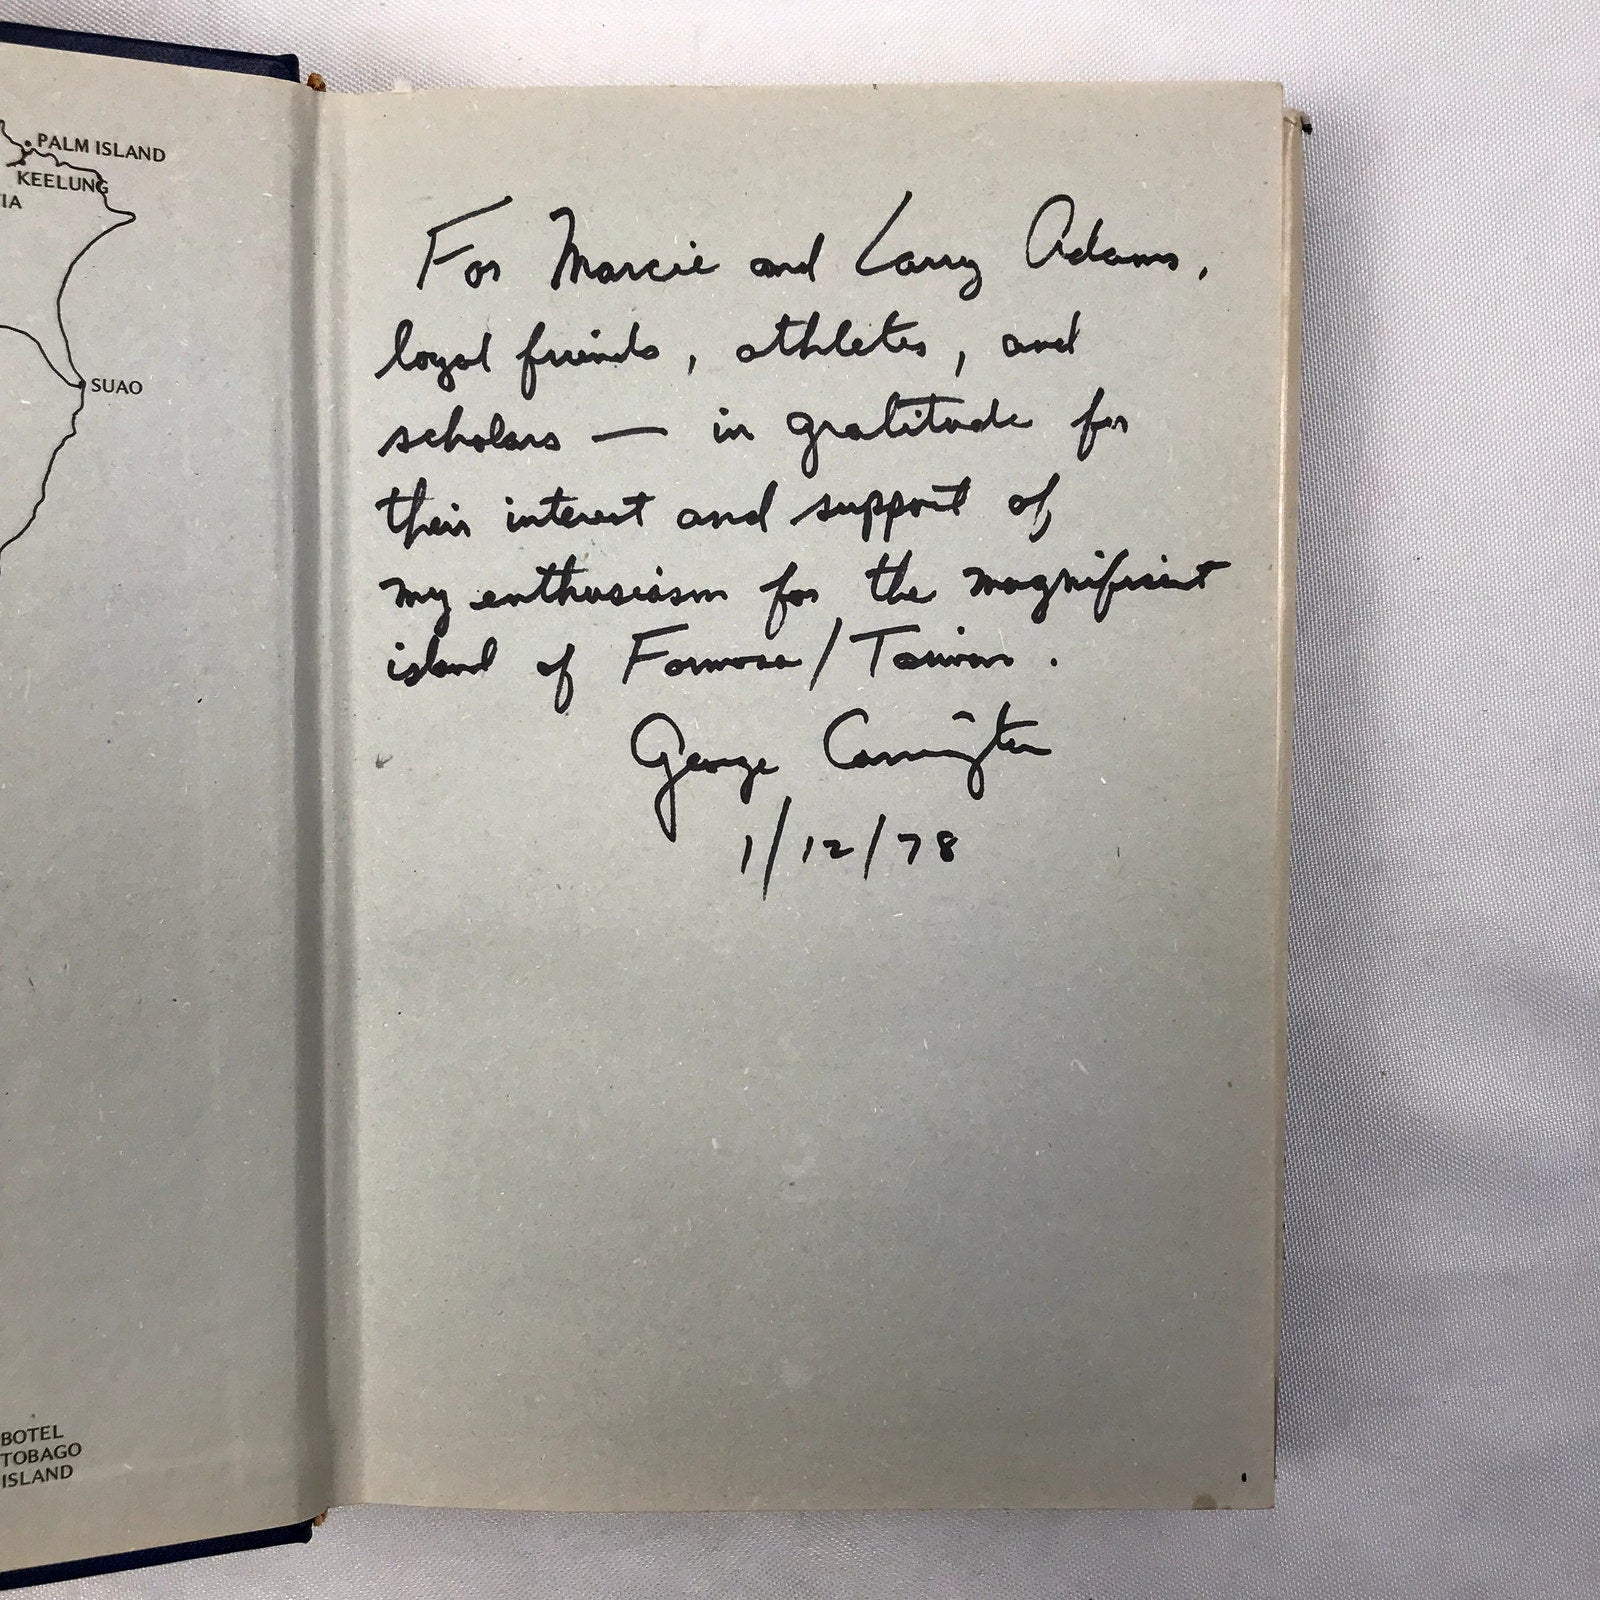 PALM ISLAND
KEELUNG
IA
SUAO
BOTEL
TOBAGO
ISLAND
For Marcie and Larry Adams,
loyal friends, athletes, and
scholars — in gratitude for
their interest and support of
my enthusiasm for the magnificent
island of Formosa/Taiwan.
George Carrington
1/12/78